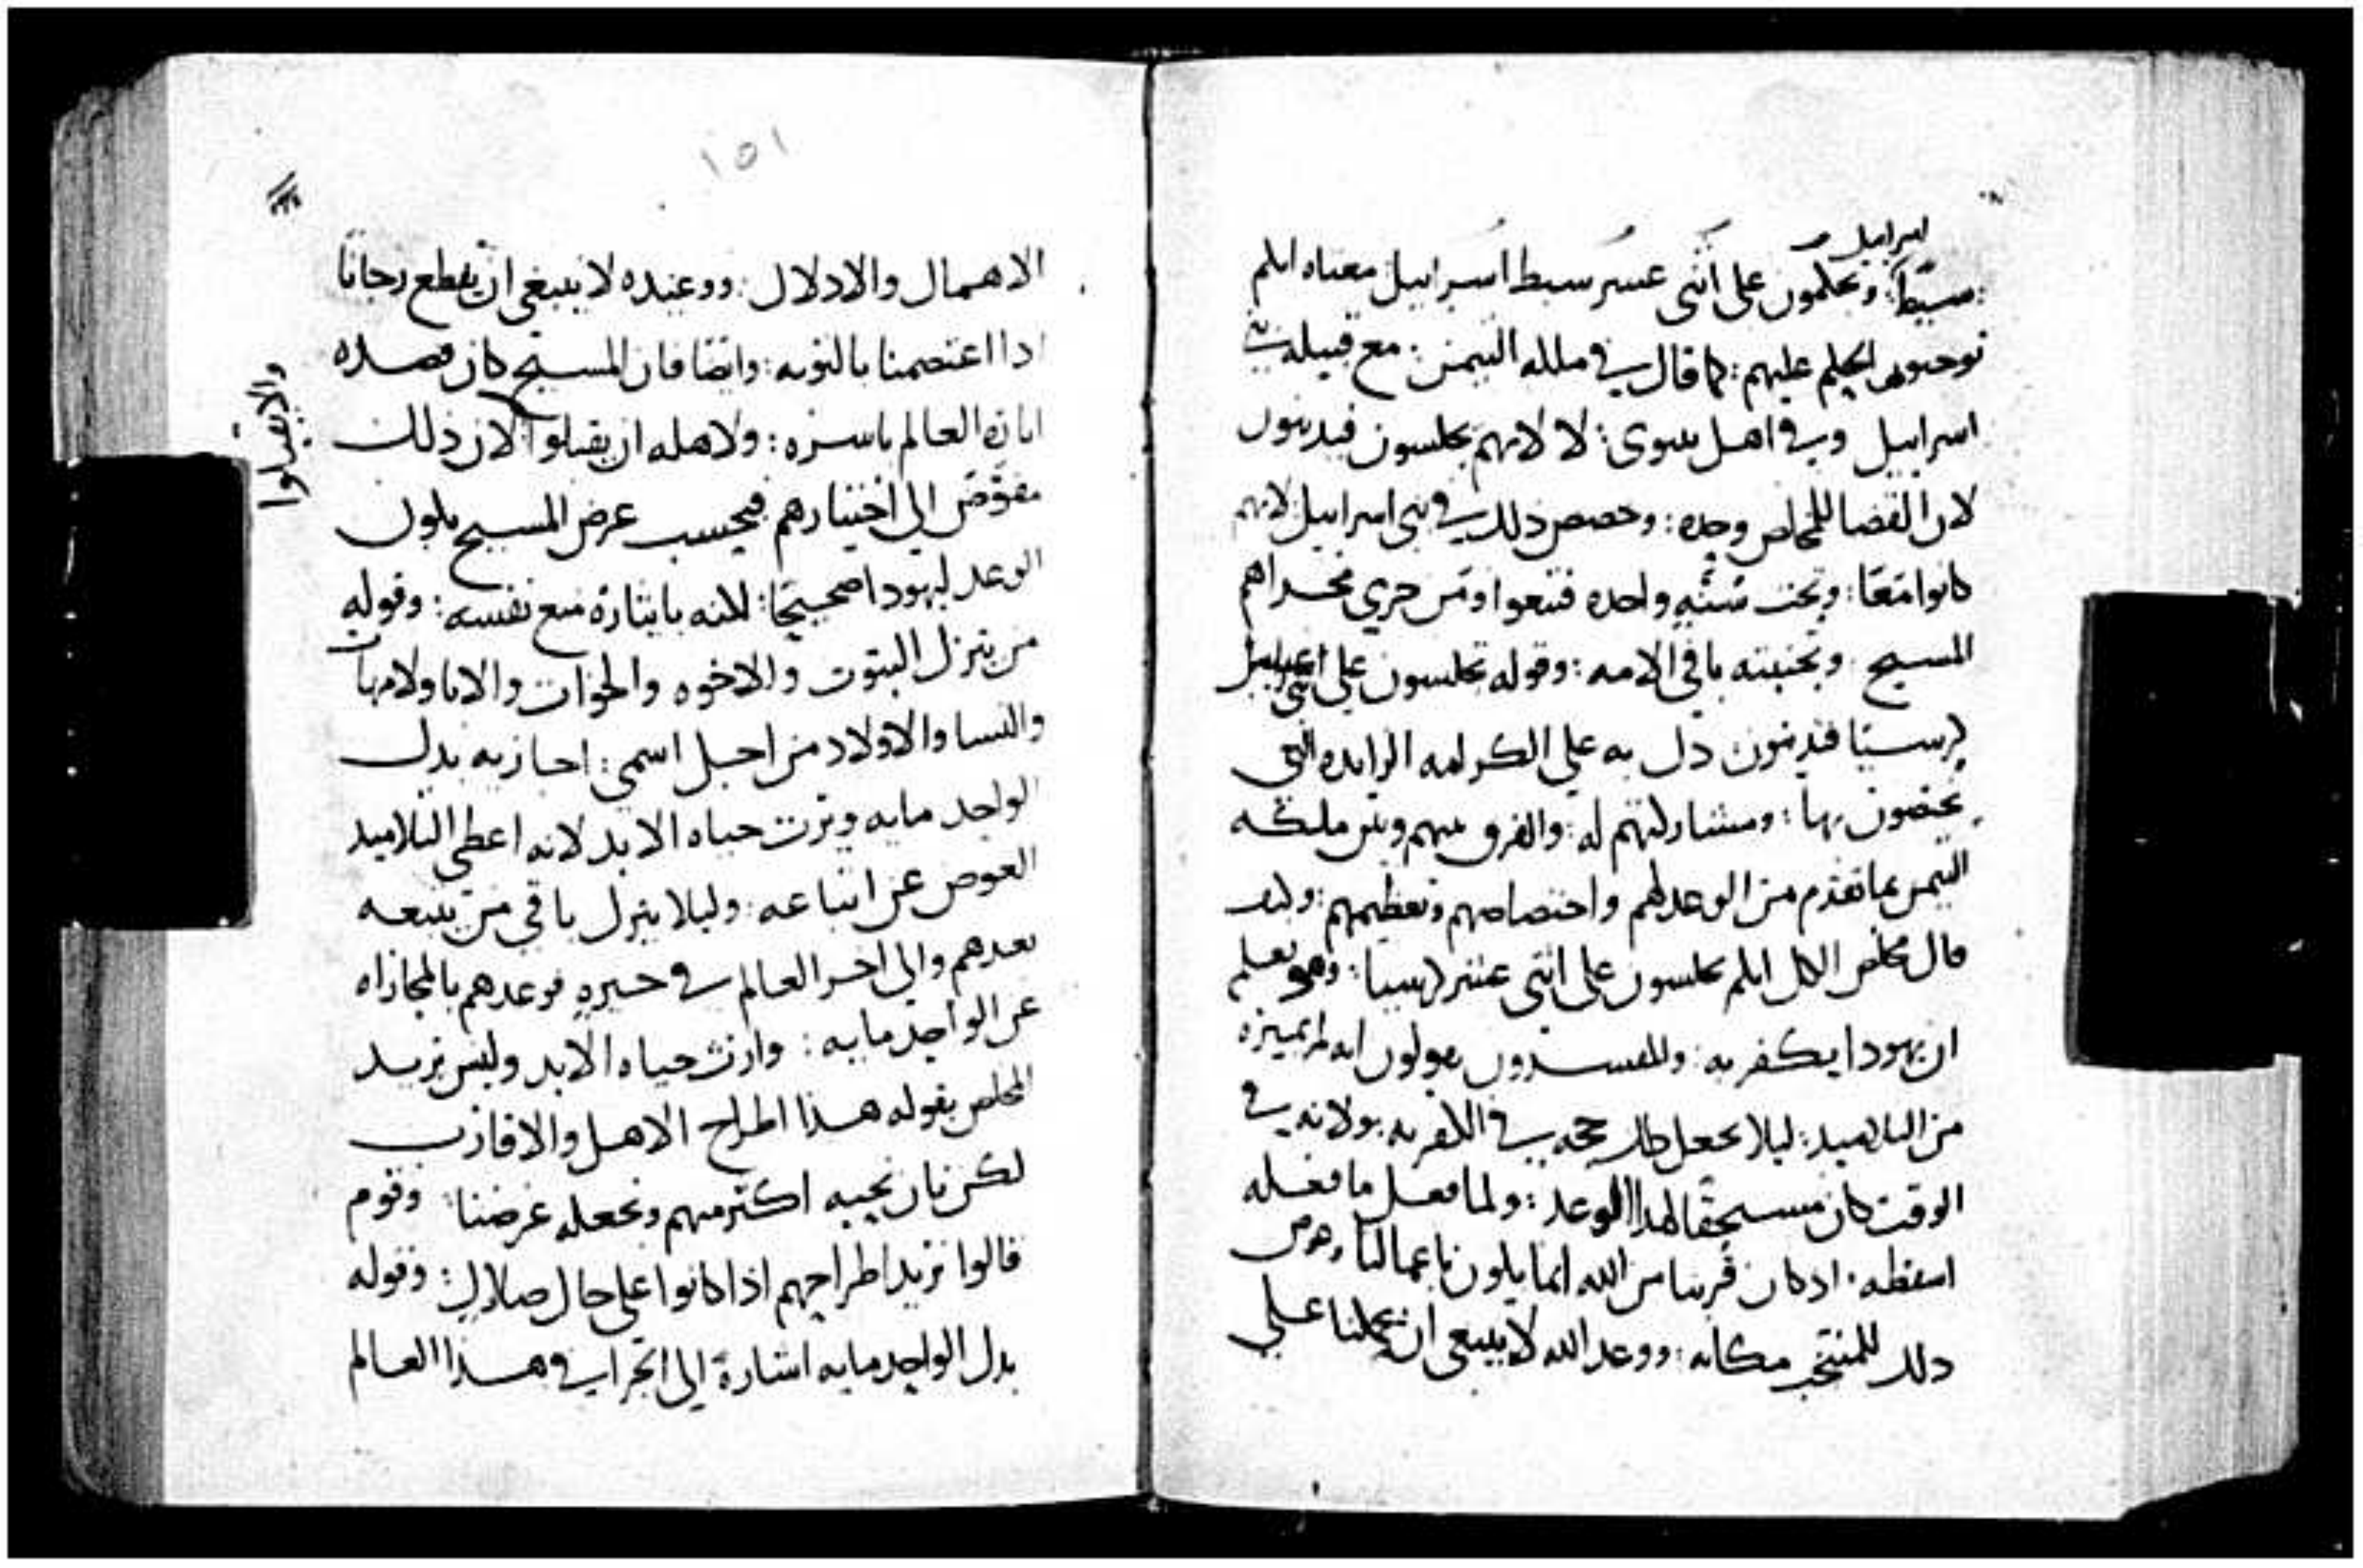 اسراييل
سبط: وتحكمون على اثنى عشر سبط اسراييل معناه انكم
توجبون الحكم عليهم: كما قال في ملكه التيمن: مع قبيله بني
اسراييل وفي اهل نينوى: لا لانهم يجلسون فيدينون
لان القضا للمخلص وحده: وخصص ذلك في بني اسراييل لانهم
كانوا معًا: وتحت سُنَّهٍ واحده فتبعوا ومن جرى مجراهم
المسيح. وتجنبته باقي الامه: وقوله تجلسون على اثنى عشر
كرسيًا فتدينون دل به على الكرامه الزايده التي
يختصون بها: ومشاركتهم له: والفرق بينهم وبين ملكه
التيمن بما تقدم من الوعد لهم واختصاصهم وتعظيمهم: وكيف
قال مخلص الكل انكم تجلسون على اثنى عشر كرسيا: وهو يعلم
ان يهودا يكفر به: والمفسرون يقولون انه لم يميزه
من التلاميد: ليلا يجعل ذلك حجه في الكفر به: ولانه في
الوقت كان مستحقًا لهدا الوعد: ولما فعل ما فعله
اسقطه. اد كان قربنا من الله انما يكون باعمالنا
دلك للمنتخب مكانه: ووعد الله لا ينبغي ان يحملنا على
١٥١
الاهمال والادلال: ووعيده لا ينبغي ان يقطع رجانا
ادا اعتصمنا بالتوبه: وايضًا فان المسيح كان قصده
انارة العالم باسره: ولاهله ان يقبلوا لان ذلك
والا يقبلوا
مفوّض الى اختيارهم فبحسب غرض المسيح يكون
الوعد ليهودا صحيحًا: لاكنه بايثاره منع نفسه: وقوله
من يترك البيوت والاخوه والاخوات والابا والامهات
والنسا والاولاد من اجل اسمي: اجازيه بدل
الواحد مايه ويرث حياه الابد لانه اعطى التلاميد
العوض عن اتباعه: وليلا يترك باقي من يتبعه
بعدهم والى اخر العالم في حيرهٍ فوعدهم بالمجازاه
عن الواحد مايه: وارث حياه الابد وليس يريد
المخلص بقوله هذا اطراح الاهل والاقارب
لكن بان نحبه اكثر منهم ونجعله غرضنا: وقوم
قالوا يريد اطراحهم اذا كانوا على حال ضلال: وقوله
بدل الواحد مايه اشارة الى اجر في هذا العالم